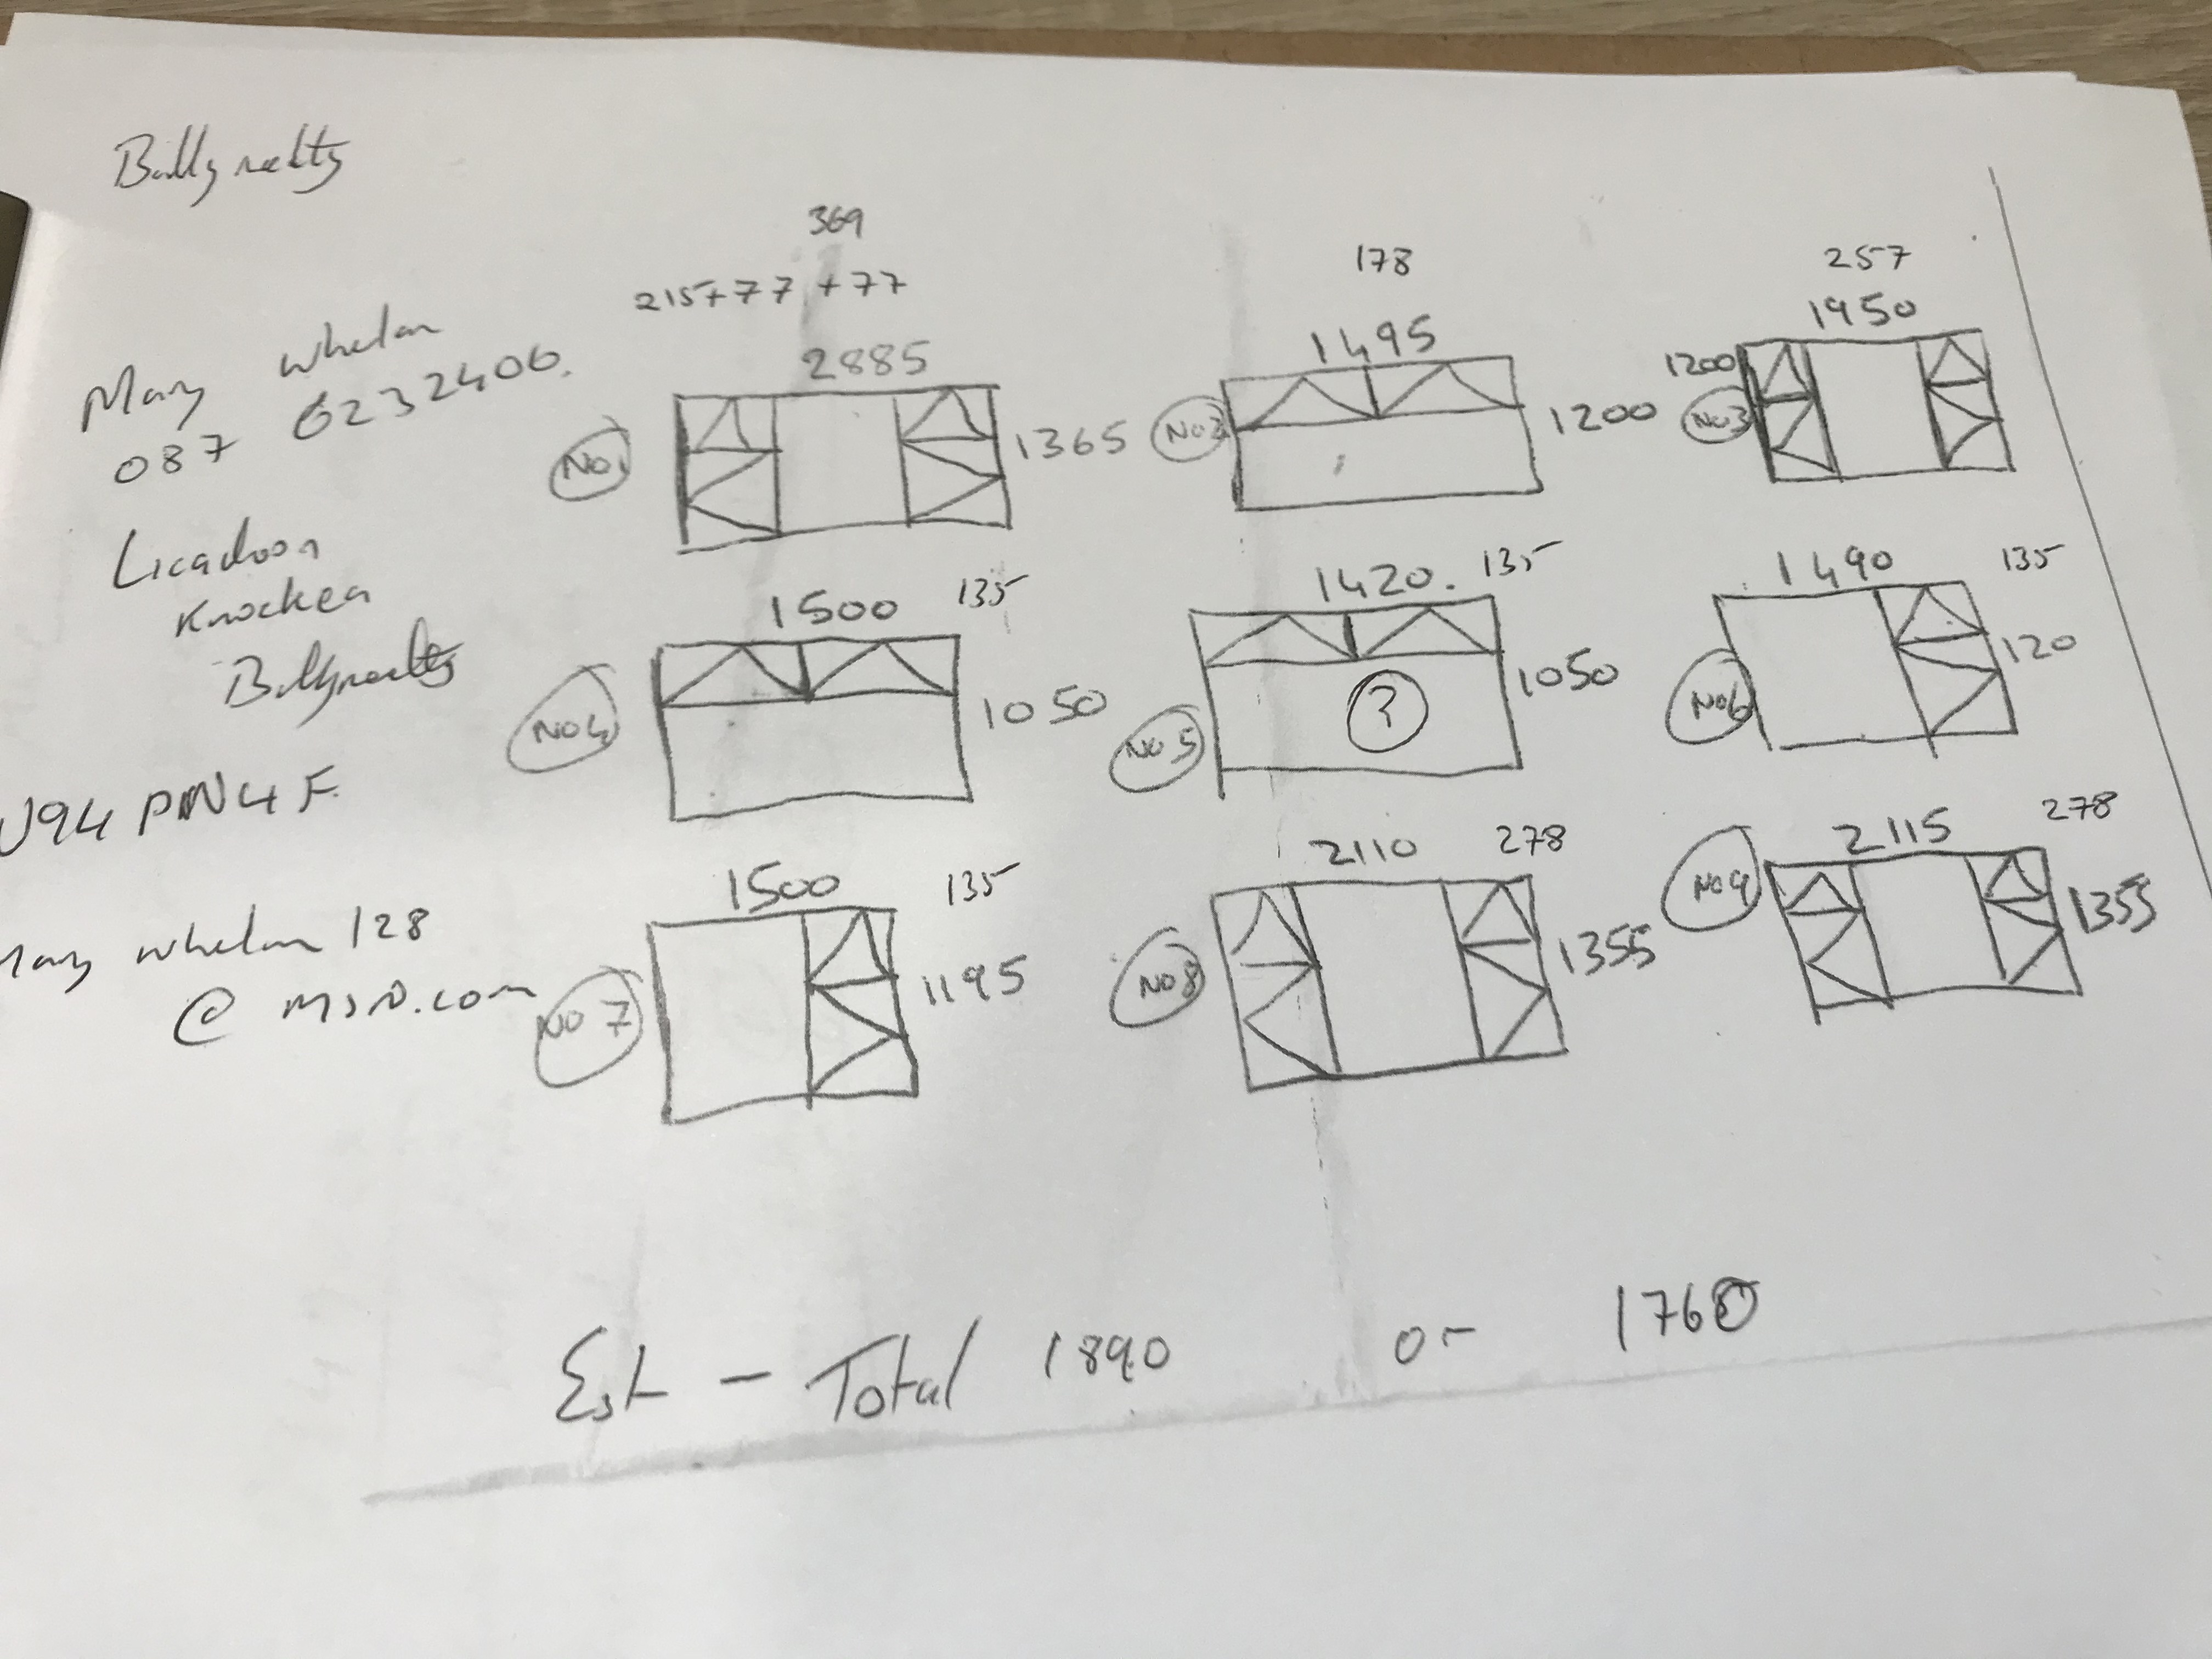 Ballyneety
Mary Whelan
087 6232406.
Licadoon
Knockea
Ballyneety
V94 PN4F
Mary whelan 128
@ msn.com
369
215+77+77
2885
No1
1365
178
1495
No2
1200
257
1950
1200
No3
1500 135
No4
1050
1420. 135
No5
?
1050
1490 135
No6
120
1500 135
No 7
1195
2110 278
No8
1355
2115 278
No9
1355
Est - Total 1890 or 1760